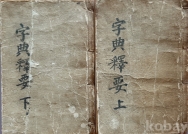 字典釋要 上
字典釋要 下
kobay